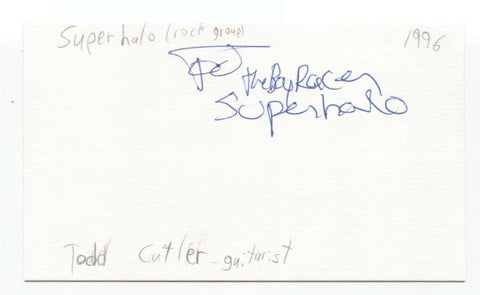 Superhalo (rock group) 1996
Superhalo
Todd Cutler - guitarist